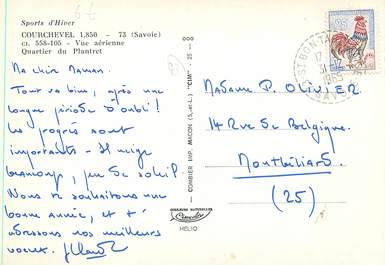 Sports d'Hiver
COURCHEVEL 1.850 - 73 (Savoie)
CI. 558-105 - Vue aérienne
Quartier du Plantret
Ma chère Maman.
Tout va bien, après une
longue période d'oubli !
Les progrès sont
importants - Il neige
beaucoup, peu de soleil.
Nous te souhaitons une
bonne année, et t'
adressons nos meilleurs
voeux.
COMBIER IMP. MACON (S.-et-L.) "CIM"
COULEURS NATURELLES
HELIO
Madame P. OLIVIER.
14 Rue de Belgique.
Montbéliard.
(25)
0,25
31-12
1965